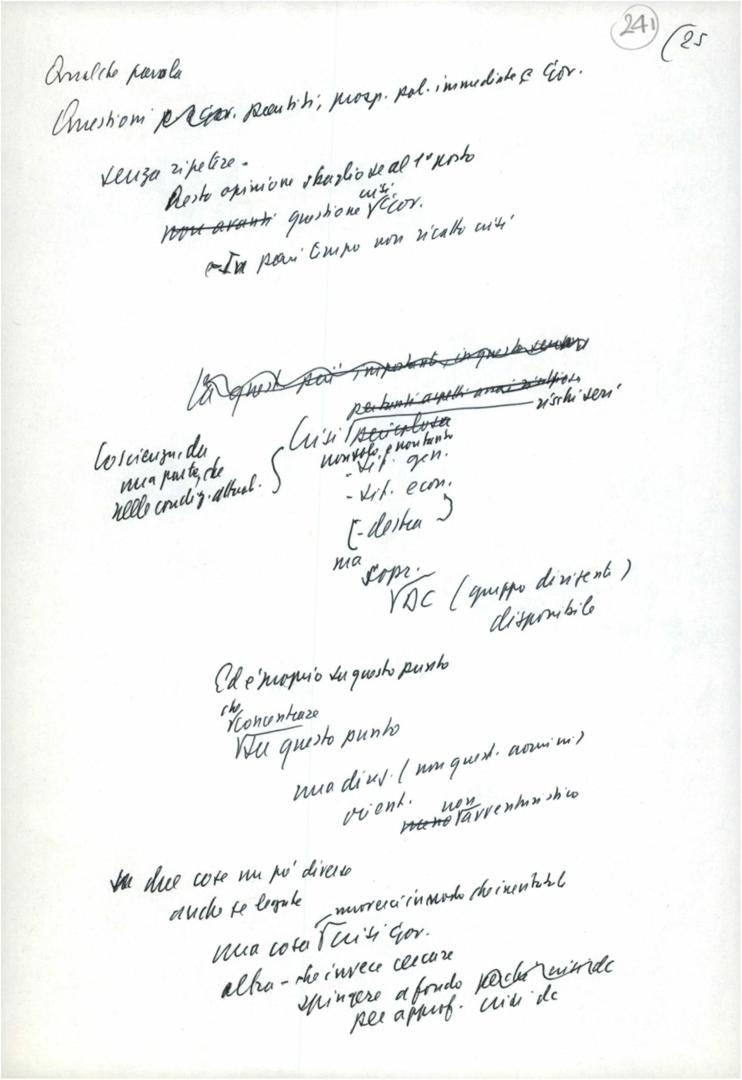 241
(25
Qualche parola
Questioni gov. partiti, prosp. pol. immediate e gov.
senza ripetere -
Resto opinione sbaglio se al 1° posto
non avanti questione crisi gov.
- In pari tempo non ricatto crisi
La quest. più important. in questo senso
per tanti aspetti
rischi seri
Crisi pericolosa
Coscienza, da
una parte, che
nelle condiz. attual.
non solo e non tanto
- sit. gen.
- sit. econ.
[- destra ]
ma
sopr.
DC (gruppo dirigente)
disponibile
Ed è proprio su questo punto
che
concentrare
Su questo punto
una divers. (non quest. nomini)
orient.
meno non avventuristico
due cose un po' diverse
anche se legate
muoverci in modo che inevitabil
una cosa crisi gov.
altra - che invece cercare
spingere a fondo perché crisi dc
per approf. crisi dc